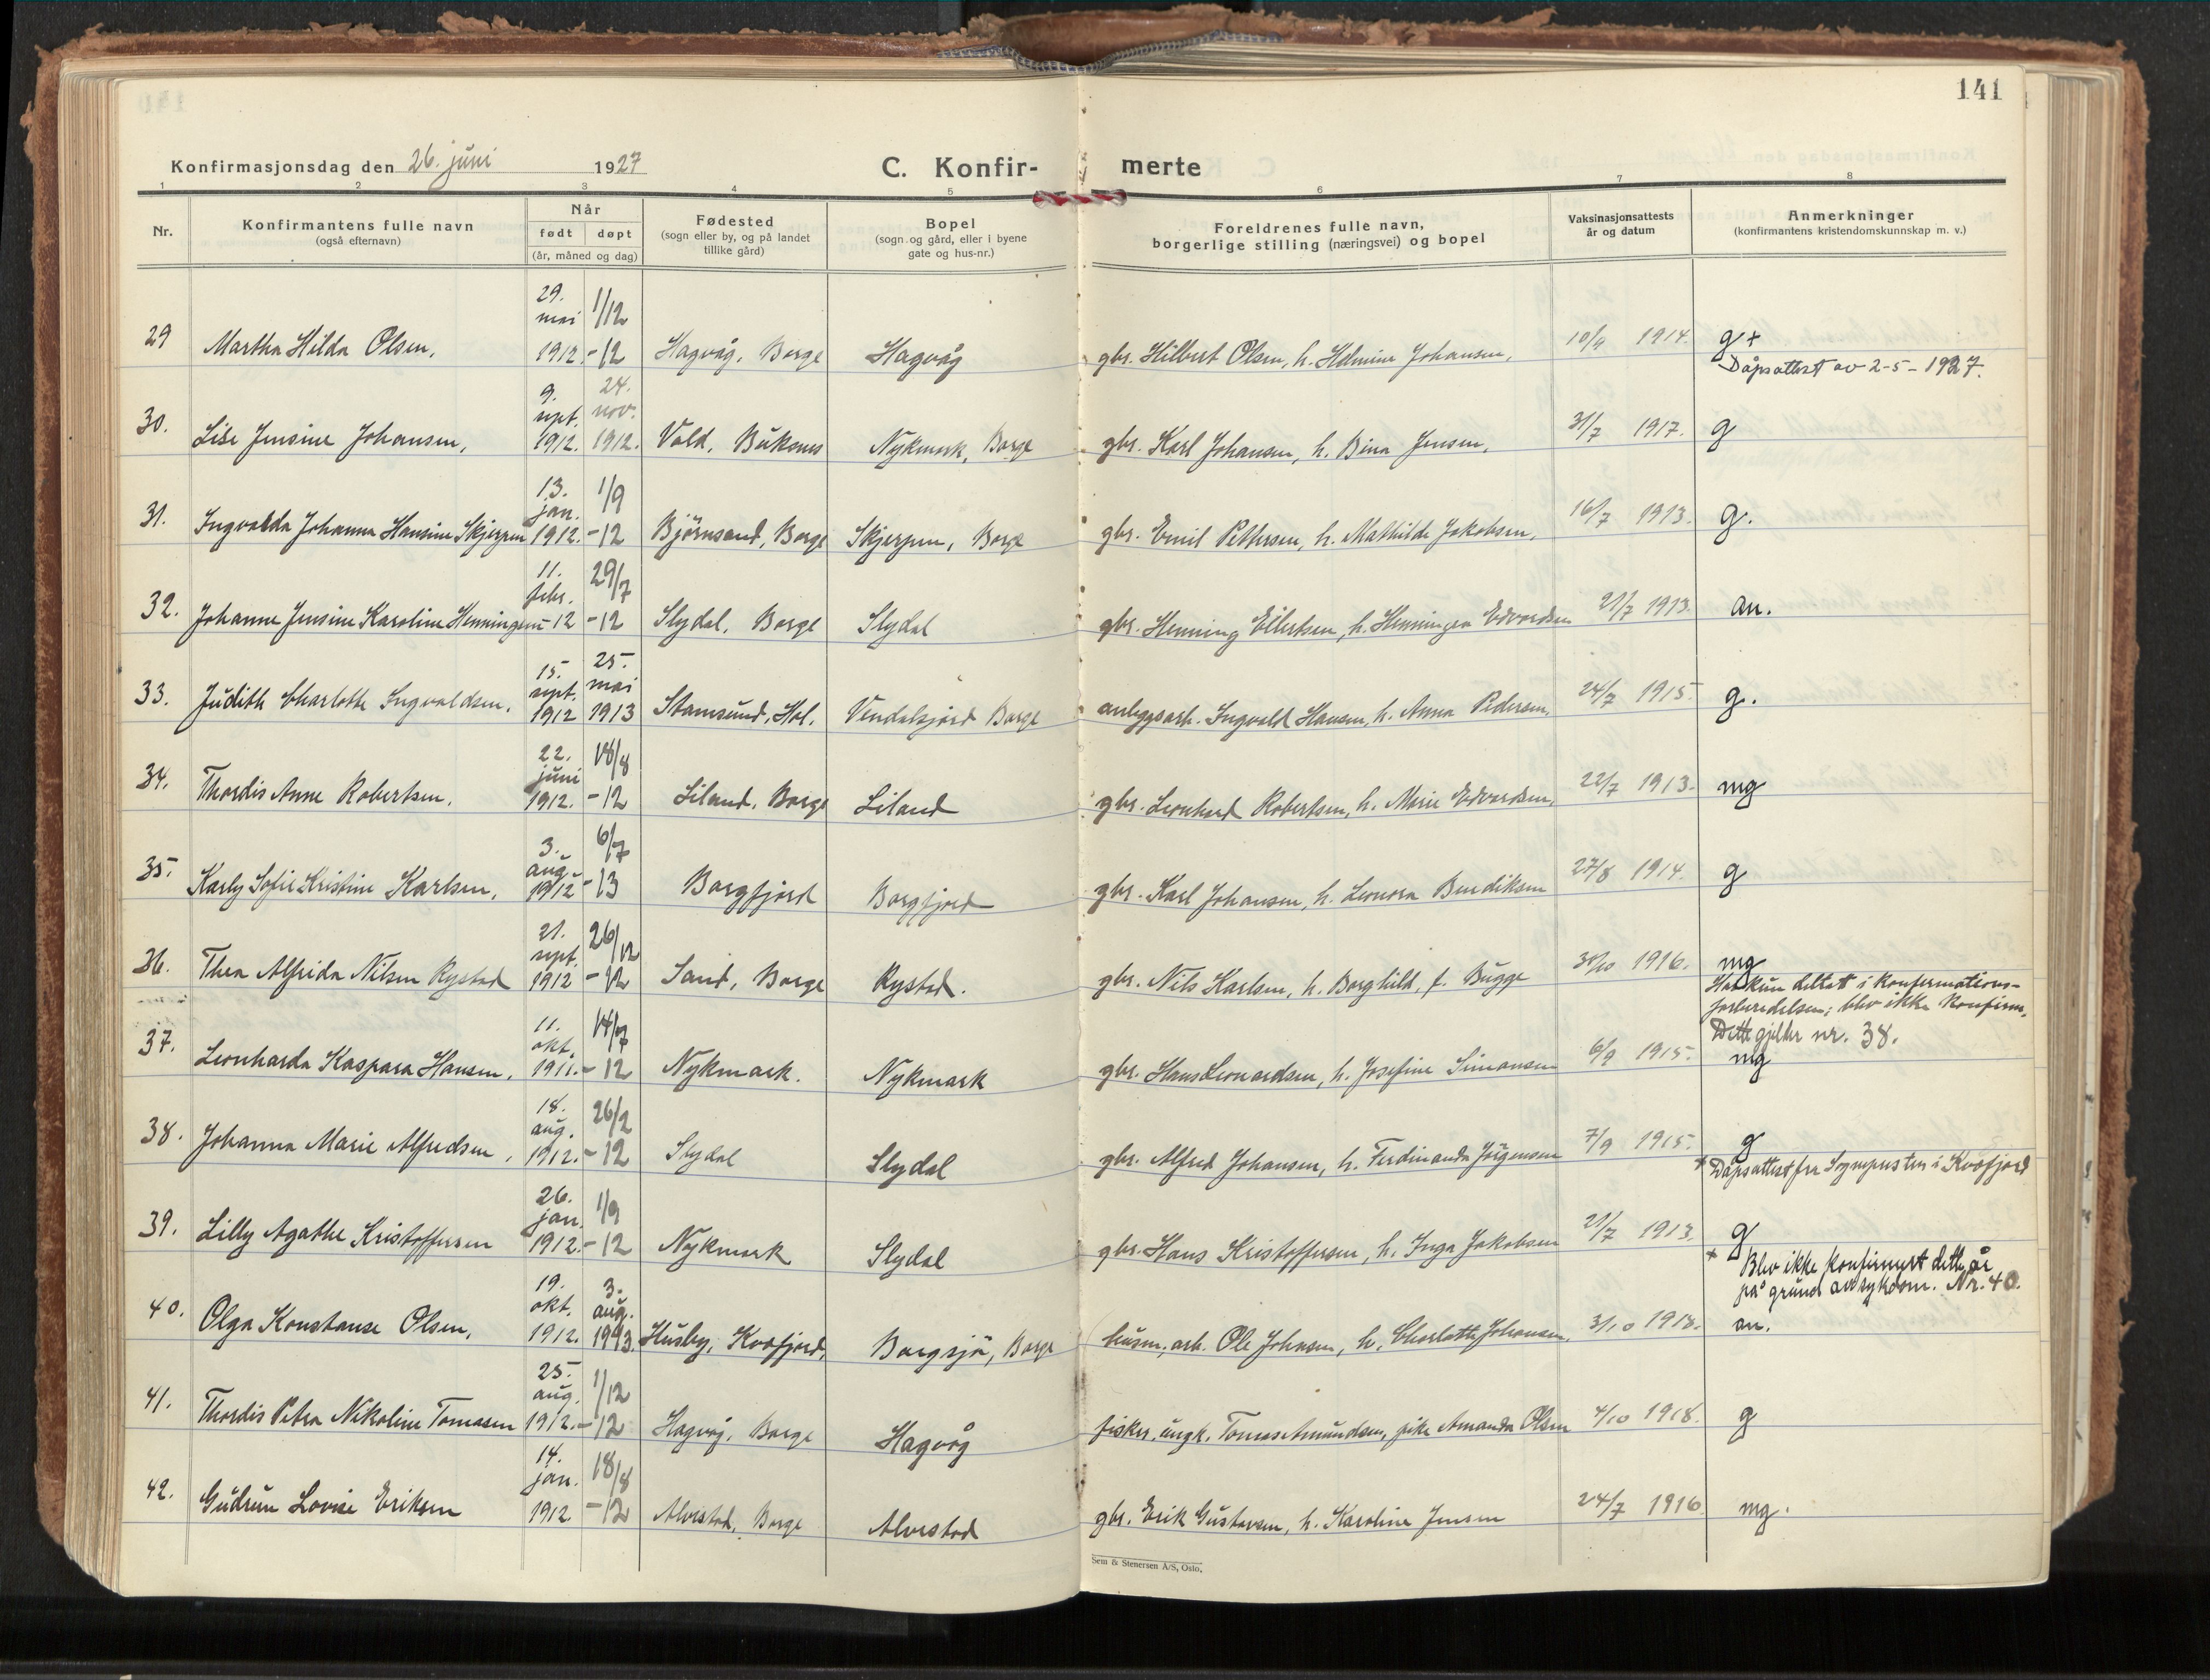 141
Konfirmasjonsdag den 26. juni 1927 C. Konfir- merte
1 2 3 4 5 6 7 8
Nr. Konfirmantens fulle navn (også efternavn) Når født døpt (år, måned og dag) Fødested (sogn eller by, og på landet tillike gård) Bopel (sogn og gård, eller i byene gate og hus-nr.) Foreldrenes fulle navn, borgerlige stilling (næringsvei) og bopel Vaksinasjonsattests år og datum Anmerkninger (konfirmantens kristendomskunnskap m. v.)
29 Martha Hilda Olsen. 29. mai 1912. 1/12 -12 Hagvåg, Borge Hagvåg gbr. Hilbert Olsen, h. Helmine Johansen. 1914. g +
Dåpsattest av 2-5-1927.
30. Lise Jensine Johansen, 9. sept. 1912. 24. nov. 1912. Vold, Buksnes Nykmark, Borge gbr. Karl Johansen, h. Bina Jensen. 31/7 1917. g
31. Ingvalda Johanna Hansine Skjerpen 13. jan. 1912. 1/9 -12 Bjørnsand, Borge Skjerpen, Borge gbr. Emil Pettersen, h. Mathilde Jakobsen. 16/7 1913. g.
32. Johanne Jensine Karoline Henningsen 11. febr. -12 29/7 -12 Slydal, Borge Slydal gbr. Henning Eilertsen, h. Henningea Edvardsen 21/7 1913. an.
33. Judith Charlotte Ingvaldsen. 15. sept. 1912 25. mai 1913 Stamsund, Hol. Vendalsjord Borge anleggsarb. Ingvald Hansen, h. Anna Pedersen. 24/7 1915. g.
34. Thordis Anne Robertsen. 22. juni 1912. 18/8 -12 Liland, Borge Liland gbr. Leonhard Robertsen, h. Marie Edvardsen. 22/7 1913. mg
35. Karly Sofie Kristine Karlsen. 3. aug. 1912 6/7 -13 Borgfjord Borgfjord gbr. Karl Johansen, h. Leonora Bendiksen 27/8 1914. g
36. Thea Alfrida Nilsen Rystad 21. sept. 1912 26/12 -12 Sand, Borge Rystad. gbr. Nils Karlsen, h. Borghild, f. Bugge 1916. mg
Har kun deltatt i konfirmations-
forberedelsen; blev ikke konfirm.
Dette gjelder nr. 38.
37. Leonharda Kaspara Hansen. 11. okt. 1911. 14/7 -12 Nykmark. Nykmark gbr. Hans Leonardsen, h. Josefine Simonsen 6/9 1915. mg
38. Johanna Marie Alfredsen, 18. aug. 1912. 26/2 -12 Slydal Slydal gbr. Alfred Johansen, h. Ferdinanda Jörgensen 7/9 1915. g
+ Dåpsattest fra Sognepresten i Kvæfjord
39. Lilly Agathe Kristoffersen 26. jan. 1912. 1/9 -12 Nykmark Slydal gbr. Hans Kristoffersen, h. Inga Jakobsen 21/7 1913. g
+ Blev ikke konfirmert dette år
på grund av sykdom. Nr. 40.
40. Olga Konstanse Olsen. 19. okt. 1912. 3. aug. 1913. Husby, Kvæfjord, Borgsjø, Borge husm., arb. Ole Johnsen, h. Charlotte Johansen. 3/10 1918. an.
41. Thordis Petra Nikoline Tomasen 25. aug. 1912. 1/12 -12 Hagvåg, Borge Hagvåg fisker, ungk. Tomas Amundsen, pike Amanda Olsen 4/10 1918. g
42. Gudrun Lovise Eriksen 14. jan. 1912 18/8 -12 Alvestad, Borge Alvestad gbr. Erik Gustavsen, h. Karoline Jensen 24/7 1916 mg.
Sem & Stenersen A/S, Oslo.